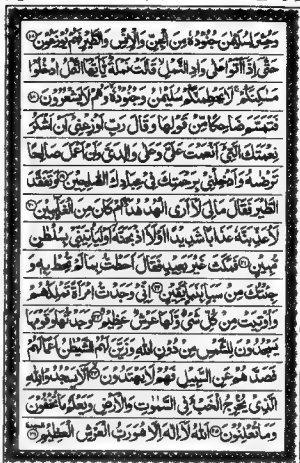 وَحُشِرَ لِسُلَيْمٰنَ جُنُوْدُهٗ مِنَ الْجِنِّ وَالْاِنْسِ وَالطَّيْرِ فَهُمْ يُوْزَعُوْنَ ﴿۱۷﴾
حَتّٰۤى اِذَاۤ اَتَوْا عَلٰى وَادِ النَّمْلِ ۙ قَالَتْ نَمْلَةٌ يّٰۤاَيُّهَا النَّمْلُ ادْخُلُوْا
مَسٰكِنَكُمْ ۚ لَا يَحْطِمَنَّكُمْ سُلَيْمٰنُ وَجُنُوْدُهٗ ۙ وَهُمْ لَا يَشْعُرُوْنَ ﴿۱۸﴾
فَتَبَسَّمَ ضَاحِكًا مِّنْ قَوْلِهَا وَقَالَ رَبِّ اَوْزِعْنِيْۤ اَنْ اَشْكُرَ
نِعْمَتَكَ الَّتِيْۤ اَنْعَمْتَ عَلَيَّ وَعَلٰى وَالِدَيَّ وَاَنْ اَعْمَلَ صَالِحًا
تَرْضٰىهُ وَاَدْخِلْنِيْ بِرَحْمَتِكَ فِيْ عِبَادِكَ الصّٰلِحِيْنَ ﴿۱۹﴾ وَتَفَقَّدَ
الطَّيْرَ فَقَالَ مَالِيَ لَاۤ اَرَى الْهُدْهُدَ ۖ اَمْ كَانَ مِنَ الْغَآئِبِيْنَ ﴿۲۰﴾
لَاُعَذِّبَنَّهٗ عَذَابًا شَدِيْدًا اَوْ لَاَاذْبَحَنَّهٗۤ اَوْ لَيَاْتِيَنِّيْ بِسُلْطٰنٍ
مُّبِيْنٍ ﴿۲۱﴾ فَمَكَثَ غَيْرَ بَعِيْدٍ فَقَالَ اَحَطْتُّ بِمَا لَمْ تُحِطْ بِهٖ وَ
جِئْتُكَ مِنْ سَبَاٍۭ بِنَبَاٍ يَّقِيْنٍ ﴿۲۲﴾ اِنِّيْ وَجَدْتُّ امْرَاَةً تَمْلِكُهُمْ
وَاُوْتِيَتْ مِنْ كُلِّ شَيْءٍ وَّلَهَا عَرْشٌ عَظِيْمٌ ﴿۲۳﴾ وَجَدْتُّهَا وَقَوْمَهَا
يَسْجُدُوْنَ لِلشَّمْسِ مِنْ دُوْنِ اللّٰهِ وَزَيَّنَ لَهُمُ الشَّيْطٰنُ اَعْمَالَهُمْ
فَصَدَّهُمْ عَنِ السَّبِيْلِ فَهُمْ لَا يَهْتَدُوْنَ ﴿۲۴﴾ اَلَّا يَسْجُدُوْا لِلّٰهِ
الَّذِيْ يُخْرِجُ الْخَبْءَ فِي السَّمٰوٰتِ وَالْاَرْضِ وَيَعْلَمُ مَا تُخْفُوْنَ
وَمَا تُعْلِنُوْنَ ﴿۲۵﴾ اَللّٰهُ لَاۤ اِلٰهَ اِلَّا هُوَ رَبُّ الْعَرْشِ الْعَظِيْمِ ﴿۲۶﴾